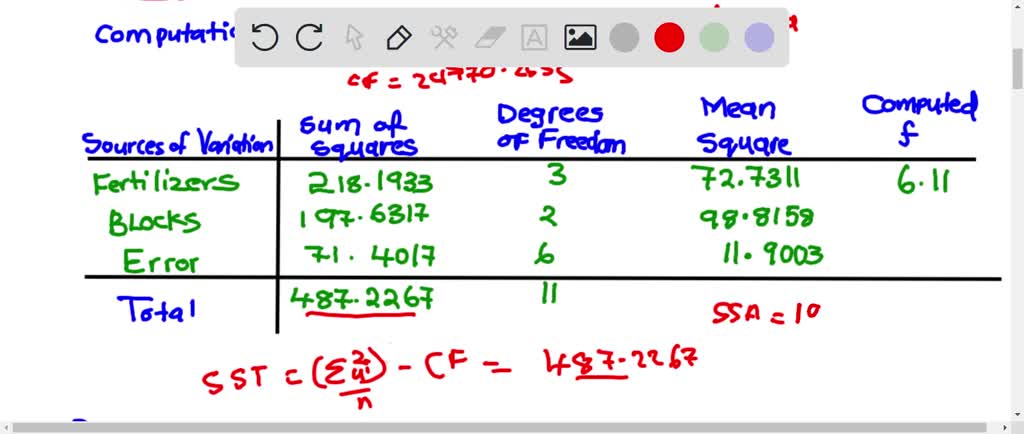 Computatio
CF = 24770.2633
Sources of Variation Sum of Squares Degrees of Freedom Mean Square Computed f
Fertilizers 218.1933 3 72.7311 6.11
Blocks 197.6317 2 98.8158
Error 71.4017 6 11.9003
Total 487.2267 11
SSA = 10
SST = (Σy²/n) - CF = 487.2267